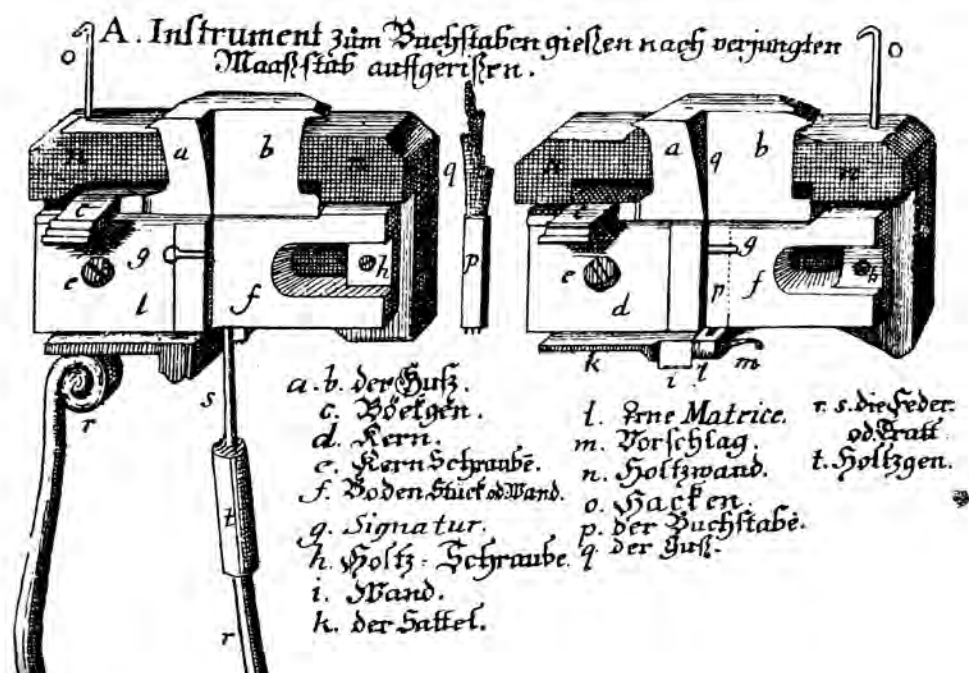 A. Instrument zum Buchstaben gießen nach verjungten
Maaßstab auffgerißen.
o
o
n
a
b
m
q
p
c
g
h
e
l
f
s
r
t
r
n
a
q
b
n
c
g
h
e
d
p
f
k
i
l
m
a. b. der Guß.
c. Böckgen.
d. Kern.
e. Kern Schraube.
f. Boden Stück od. Wand.
g. Signatur.
h. Holtz-Schraube.
i. Wand.
k. der Sattel.
l. Matrice.
m. Vorschlag.
n. Holtzwand.
o. Hacken.
p. der Buchstabe.
q. der Guß.
r. s. die Feder
od. Dratt
t. Höltzgen.